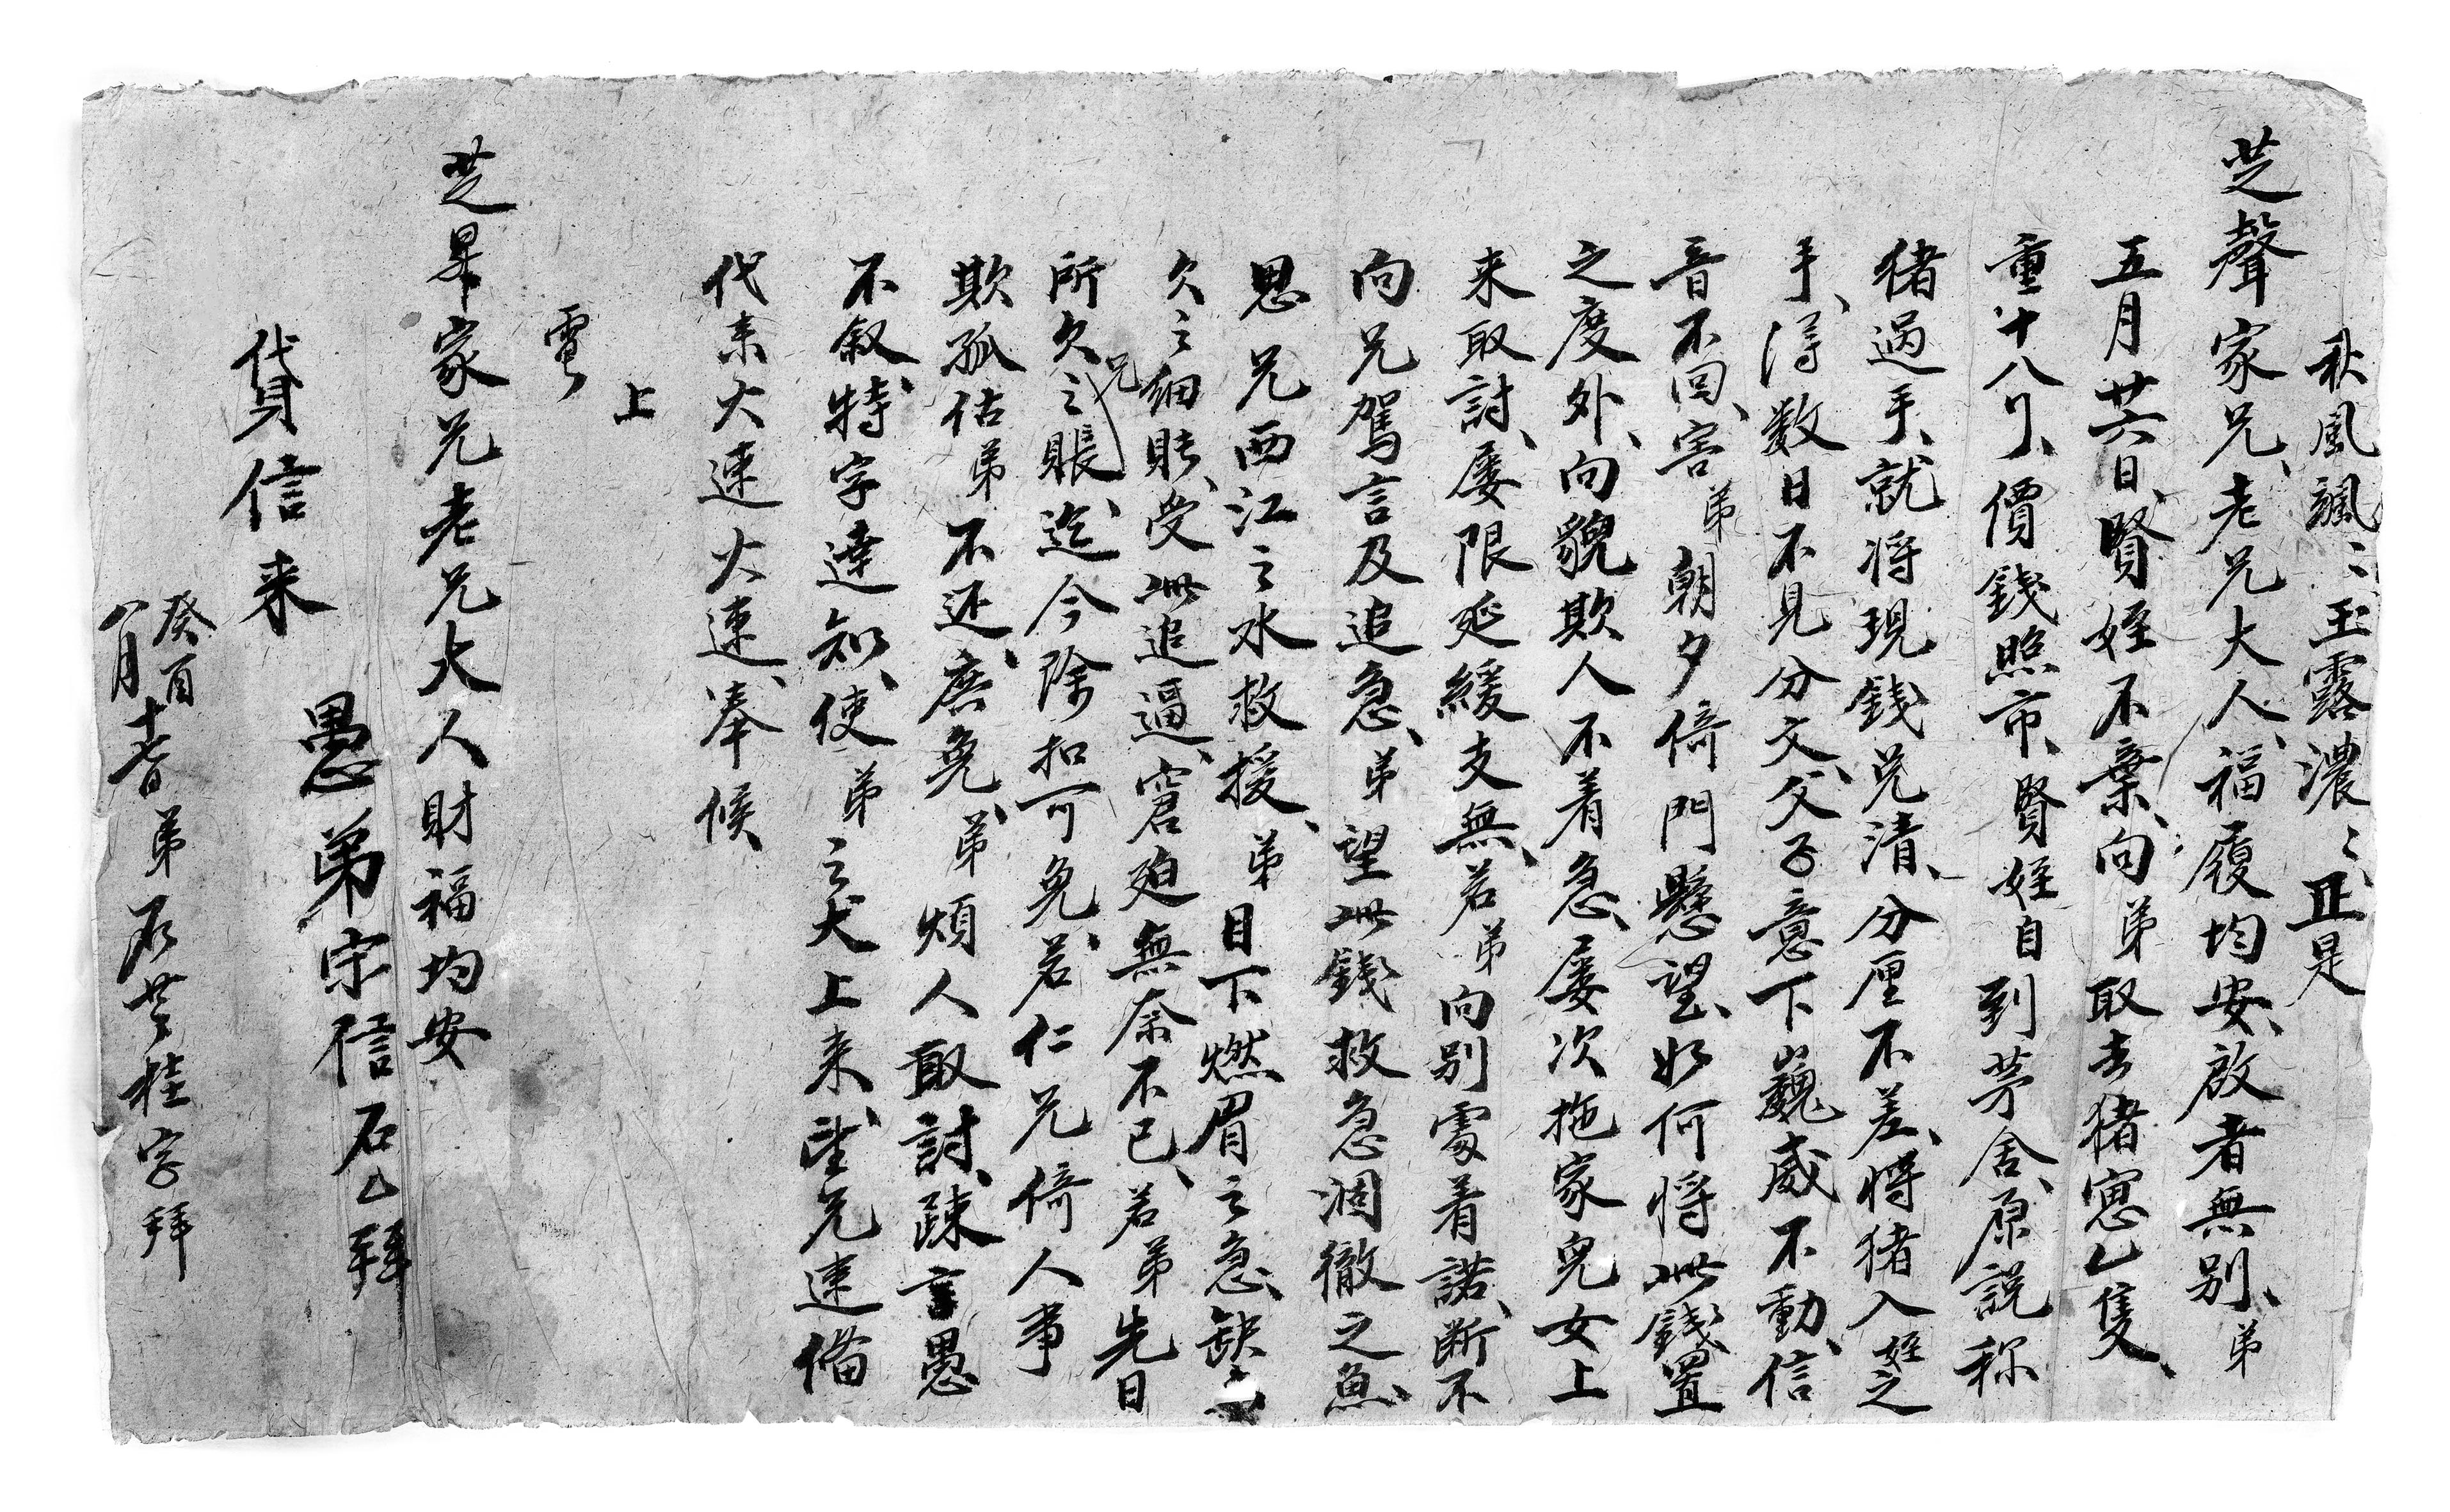 秋風颯〻玉露濃〻正是
芝聲家兄老兄大人福履均安啟者無別弟
五月廿六日賢姪不棄向弟取去猪窓乙隻
重十八斤價錢照市賢姪自到茅舍原説称
猪過手就将現錢兑清分厘不差将猪入姪之
手淂数日不見分文父子意下巍威不動信
音不回害弟朝夕倚門懸望如何将此錢置
之度外向貌欺人不着急屢次拖家兒女上
来取討屢限延緩支無若弟向别處着諾断不
向兄駕言及追急弟望此錢救急涸徹之魚
思兄西江之水救援弟目下燃眉之急缺
欠之細賬受此追逼窘廹無奈不已若弟先日
所欠兄之賬迄今除扣可免若仁兄倚人事
欺孤估弟不还庶免弟煩人取討踈言愚
不叙特字達知使弟之犬上来望兄速備
代来大速火速奉候
上
電
芝昇家兄老兄大人財福均安
愚弟宗信石乙拜
貸信来
癸酉
八月十七日弟石芳桂字拜